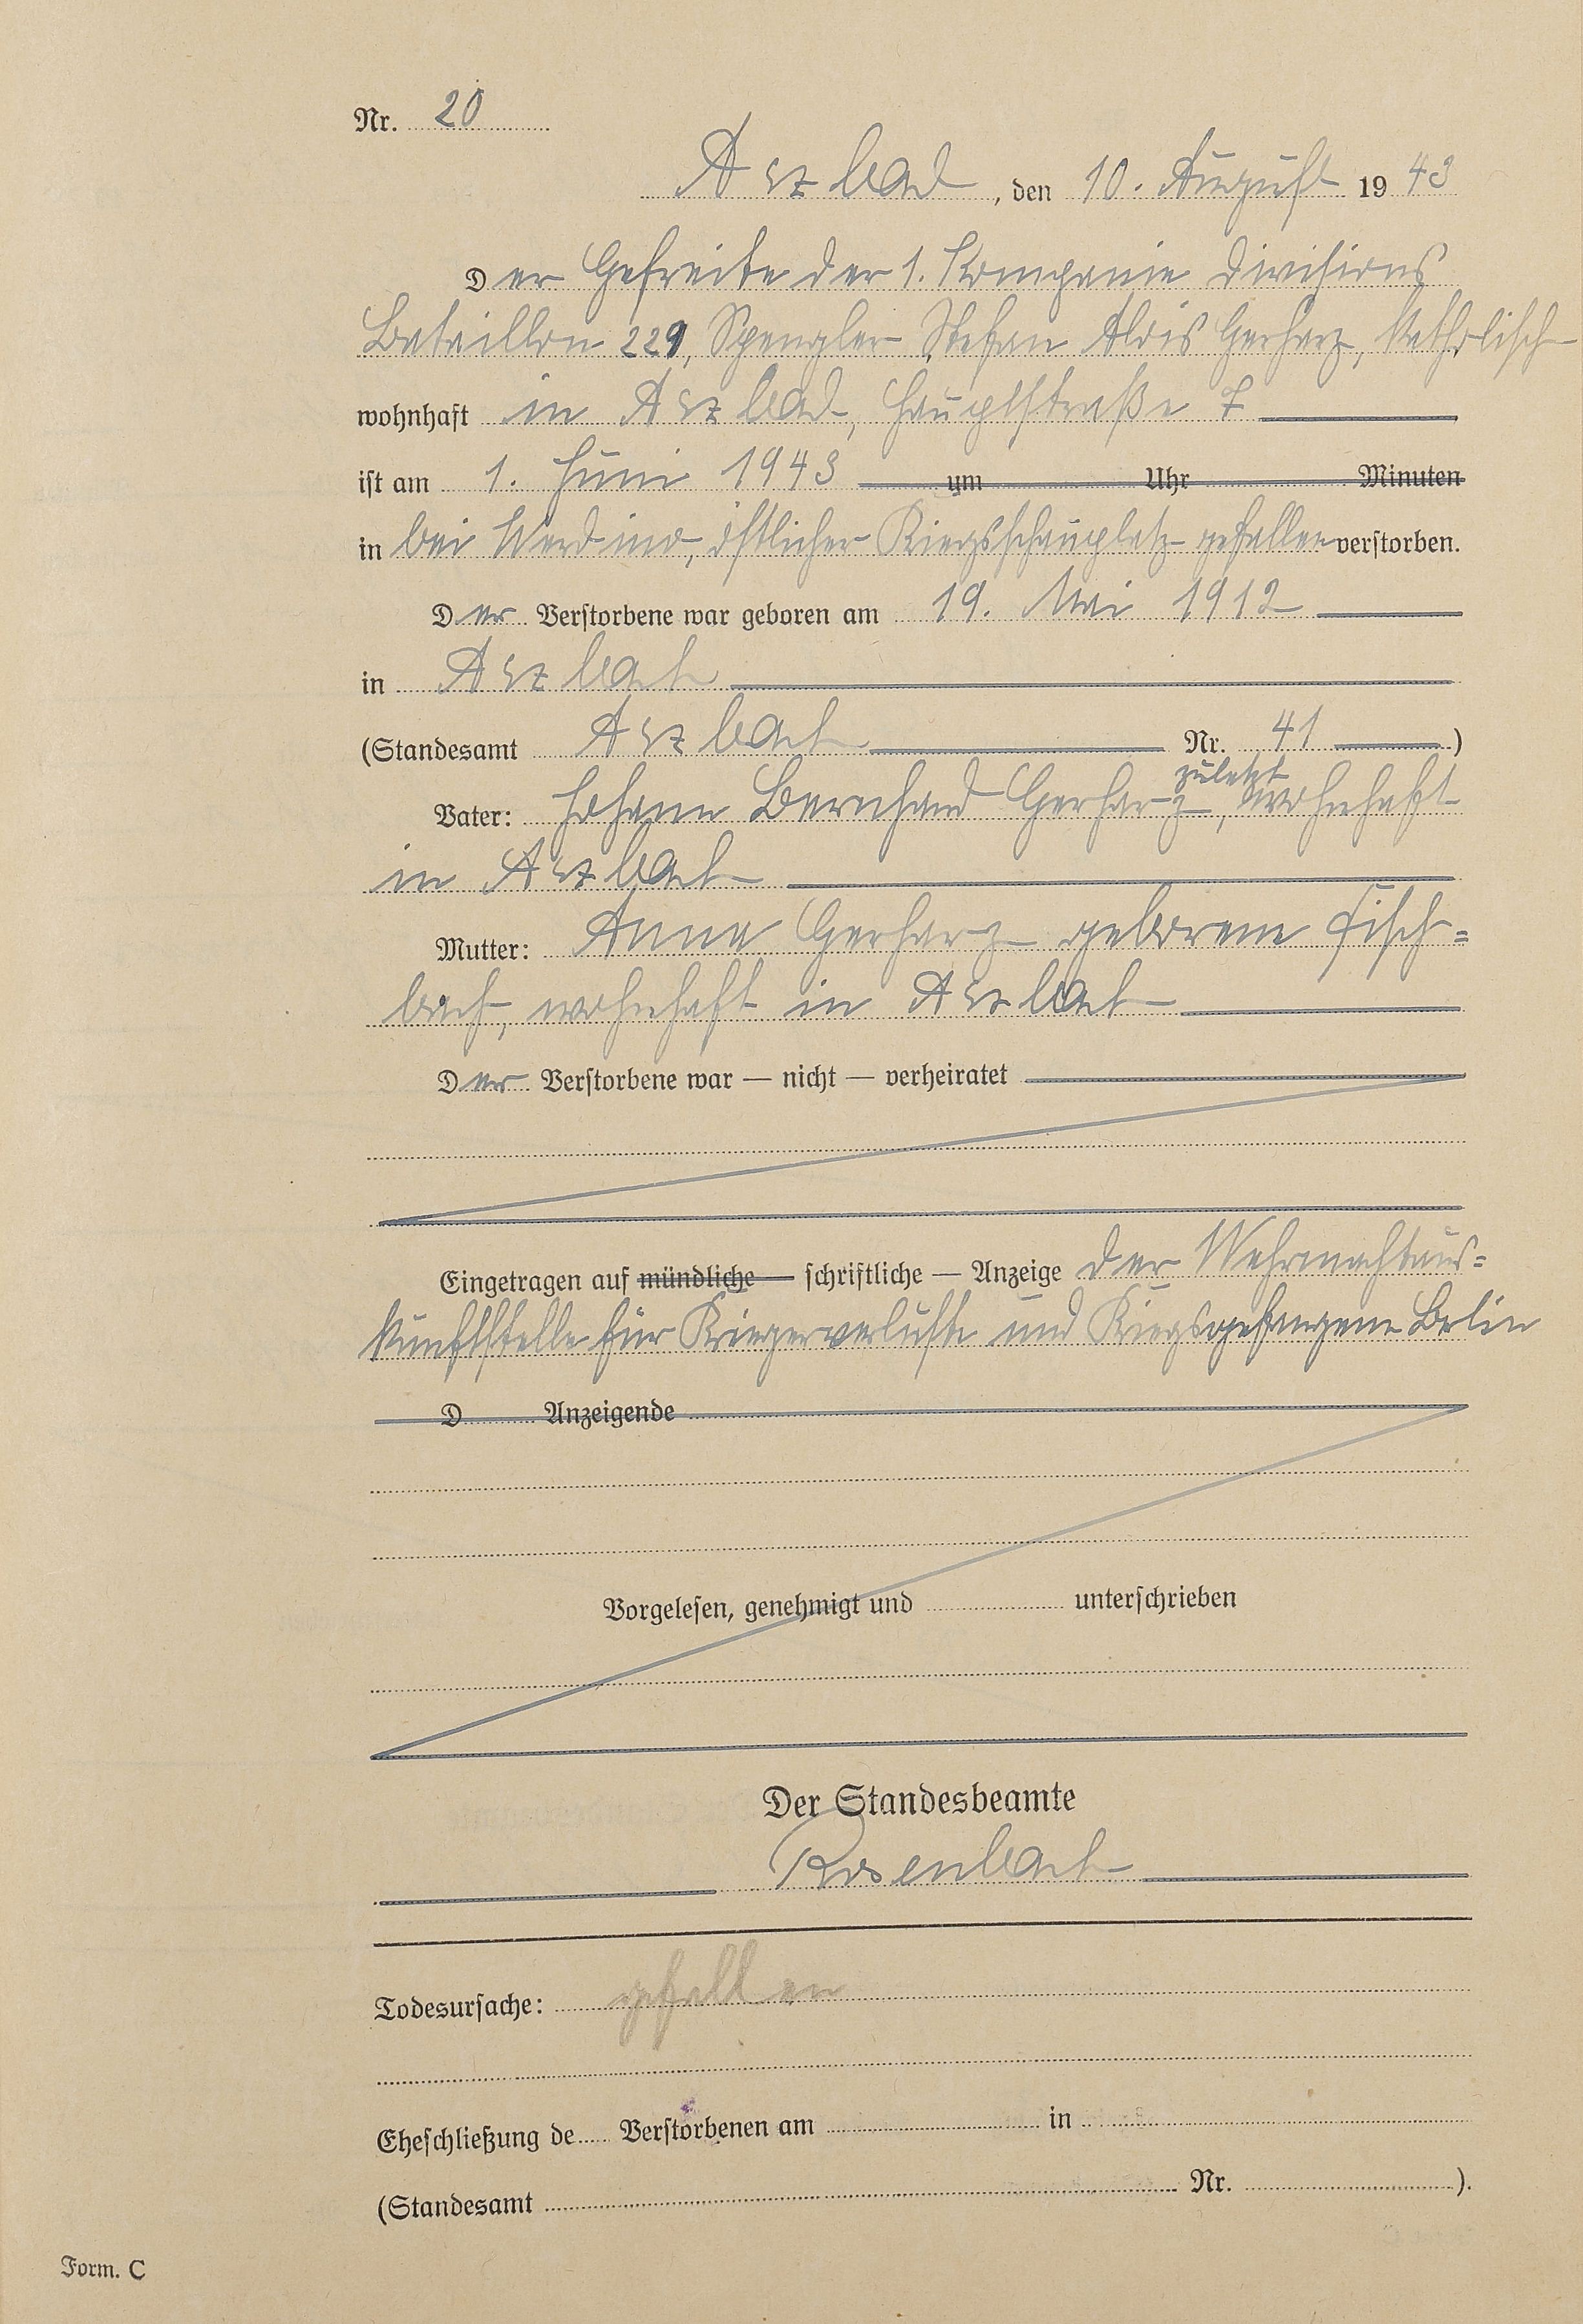 Nr. 20
Arzbach, den 10. August 1943
Der Gefreite der 1. Kompanie Divisions
Bataillon 229, Spengler Stefan Alois Gerharz, katholisch
wohnhaft in Arzbach, Hauptstraße 7
ist am 1. Juni 1943 um Uhr Minuten
in bei östlicher Kiegsschauplatz gefallen verstorben.
Der Verstorbene war geboren am 19. Mai 1912
in Arzbach
(Standesamt Arzbach Nr. 41)
zuletzt
Vater: Johann Bernhard Gerharz, wohnhaft
in Arzbach
Mutter: Anna Gerharz geborene Fisch=
bach, wohnhaft in Arzbach
Der Verstorbene war — nicht — verheiratet
Eingetragen auf mündliche — schriftliche — Anzeige der Wehrmachtaus=
kunftstelle für Kriegerverluste und Kiegsgefangene Berlin
D Anzeigende
Vorgelesen, genehmigt und unterschrieben
Der Standesbeamte
Rosenbach
Todesursache: gefallen
Eheschließung de Verstorbenen am in
(Standesamt Nr. ).
Form. C